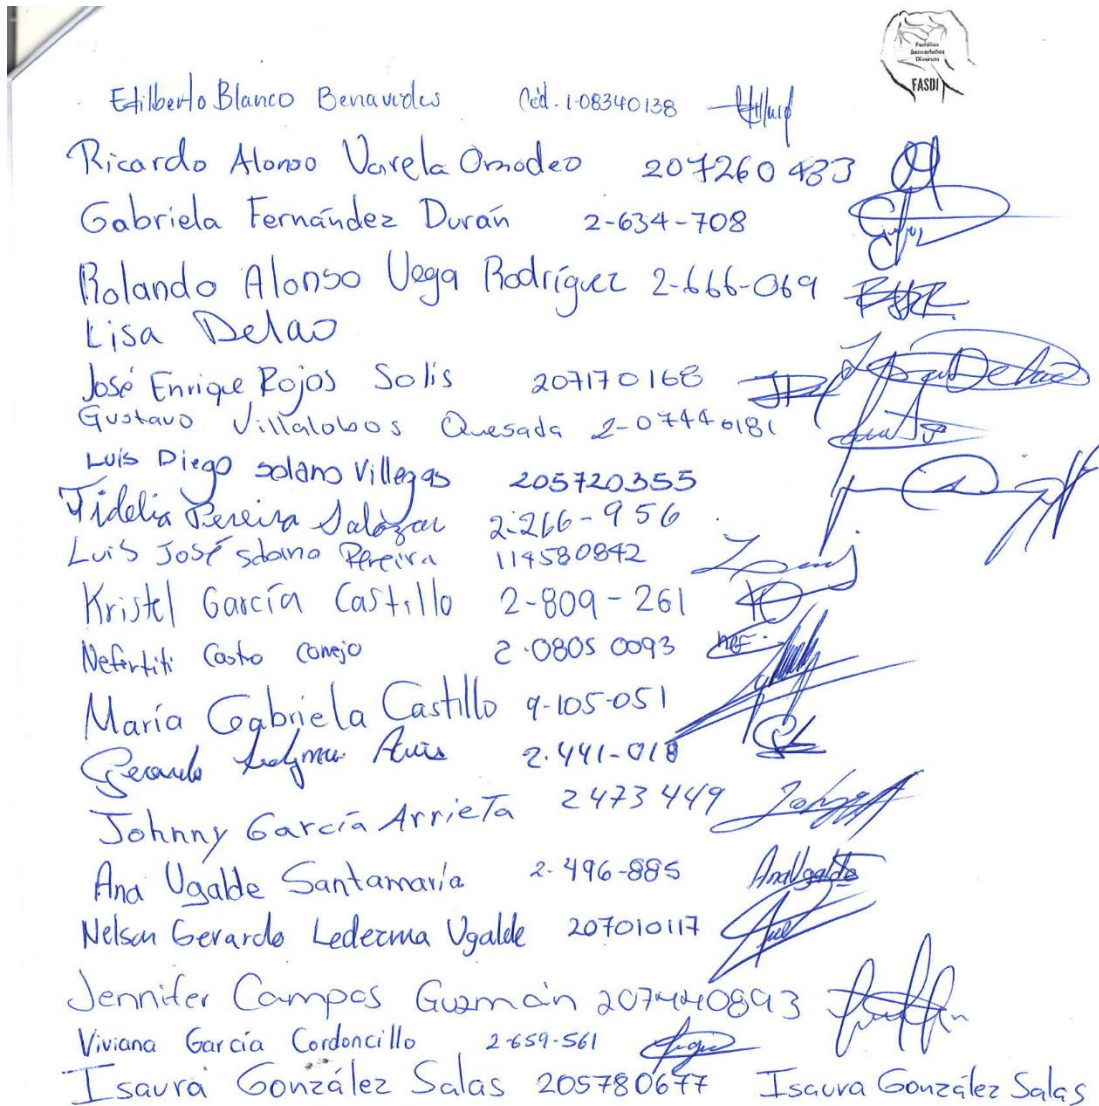 Familias
Sancarleñas
Diversas
FASDI
Edilberto Blanco Benavides Céd. 1-08340138
Ricardo Alonso Varela Omodeo 207260433
Gabriela Fernández Durán 2-634-708
Rolando Alonso Vega Rodríguez 2-666-069
Lisa Delao
José Enrique Rojas Solís 207170168
Gustavo Villalobos Quesada 2-07440181
Luis Diego solano Villegas 205720355
Fidelia Pereira Salazar 2-266-956
Luis José solano Pereira 114580842
Kristel García Castillo 2-809-261
Nefertiti Castro Conejo 2-0805 0093
María Gabriela Castillo 9-105-051
Gerardo 2-441-018
Johnny García Arrieta 2473449
Ana Ugalde Santamaría 2-496-885 Ana Ugalde
Nelson Gerardo Ledezma Ugalde 207010117
Jennifer Campos Guzmán 207440893
Viviana García Cordoncillo 2-659-561
Isaura González Salas 205780677 Isaura González Salas